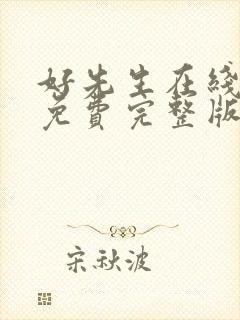 好先生在线
免费完整版
宋秋波